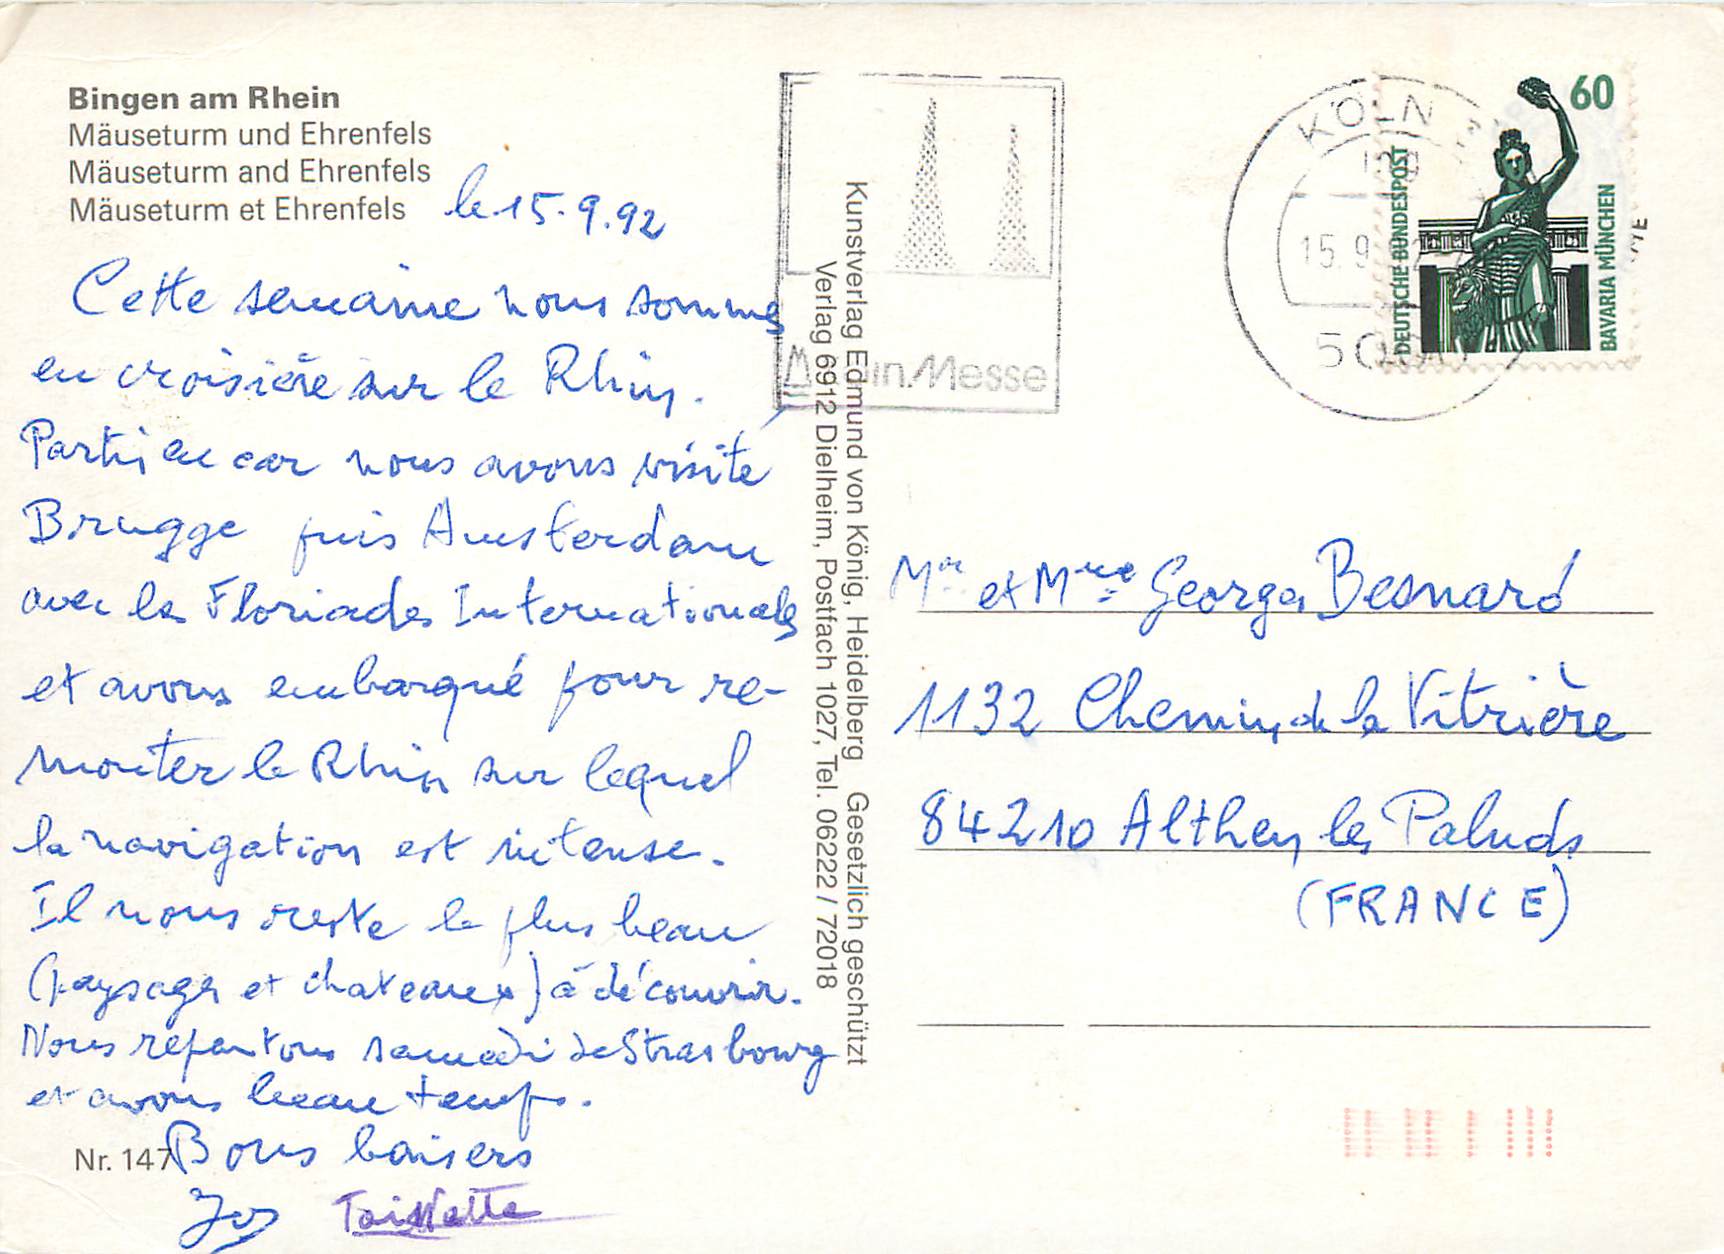 Bingen am Rhein
Mäuseturm und Ehrenfels
Mäuseturm and Ehrenfels
Mäuseturm et Ehrenfels
le 15.9.92
Cette semaine nous sommes
en croisière sur le Rhin.
Partis en car nous avons visité
Brugge puis Amsterdam
avec les Floriades Internationales
et avons embarqué pour re-
monter le Rhin sur lequel
la navigation est intense.
Il nous reste le plus beau
(paysages et chateaux) à découvrir.
Nous repartons samedi de Strasbourg
et avons beau temps.
Bons baisers
Nr. 147
Kunstverlag Edmund von König, Heidelberg Gesetzlich geschützt
Verlag 6912 Dielheim, Postfach 1027, Tel. 06222 / 72018
Messe
KÖLN
15.9
60
DEUTSCHE BUNDESPOST
BAVARIA MÜNCHEN
Mr et Mme Georges Besnard
1132 Chemin de la Vitrière
84210 Althen les Paluds
(FRANCE)